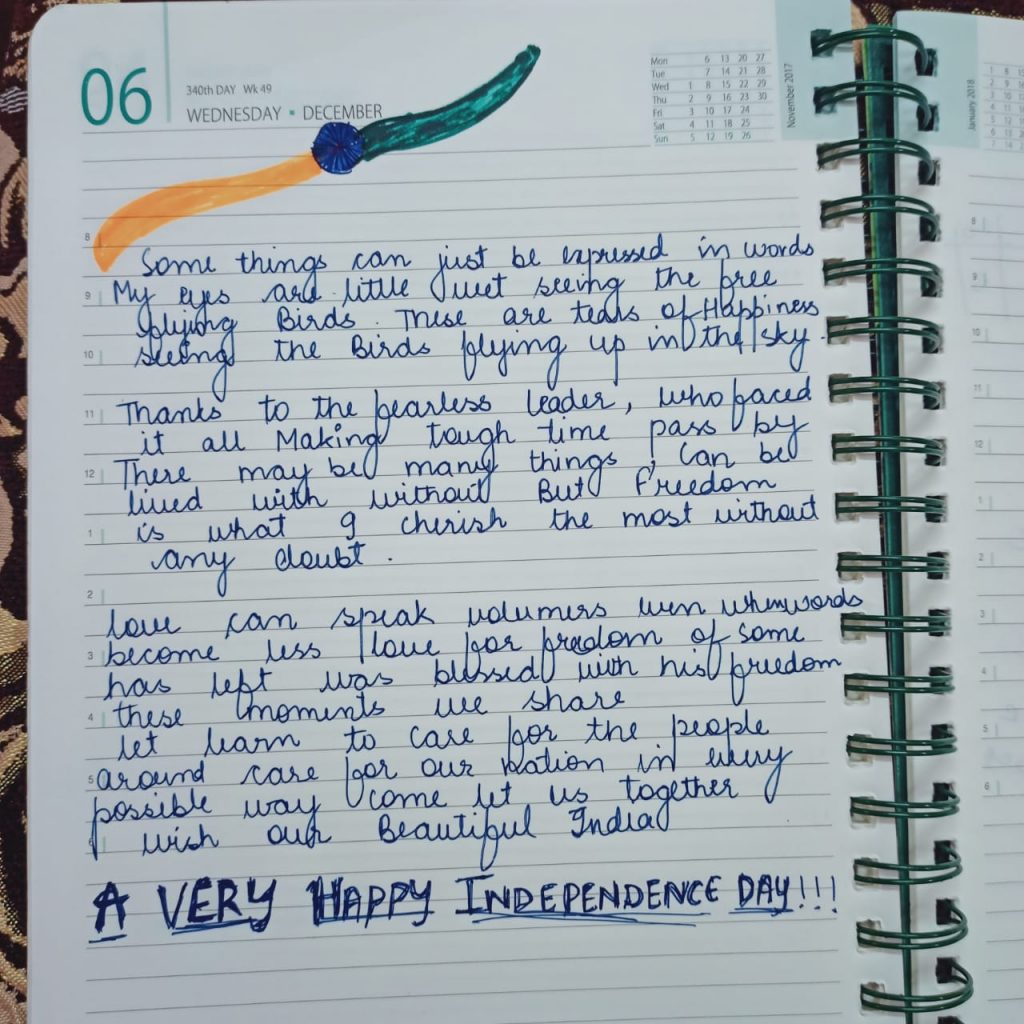 06
340th DAY Wk 49
WEDNESDAY • DECEMBER
Mon 6 13 20 27
Tue 7 14 21 28
Wed 1 8 15 22 29
Thu 2 9 16 23 30
Fri 3 10 17 24
Sat 4 11 18 25
Sun 5 12 19 26
November 2017
January 2018
Some things can just be expressed in words
My eyes are little wet seeing the free
flying Birds. These are tears of Happiness
seeing the Birds flying up in the sky.
Thanks to the fearless leader, who faced
it all Making tough time pass by
There may be many things I can be
lived with without But freedom
is what I cherish the most without
any doubt.
love can speak volumers even when words
become less love for freedom of some
has left was blessed with his freedom
these moments we share
let learn to care for the people
around care for our nation in every
possible way come let us together
wish our Beautiful India
A VERY HAPPY INDEPENDENCE DAY!!!